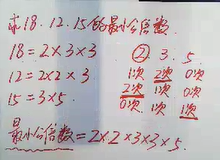 求18.12.15的最小公倍数
18=2×3×3
② 3. 5.
12=2×2×3
1次 2次 0次
15=3×5
2次 1次 0次
0次 1次 1次
最小公倍数=2×2×3×3×5.